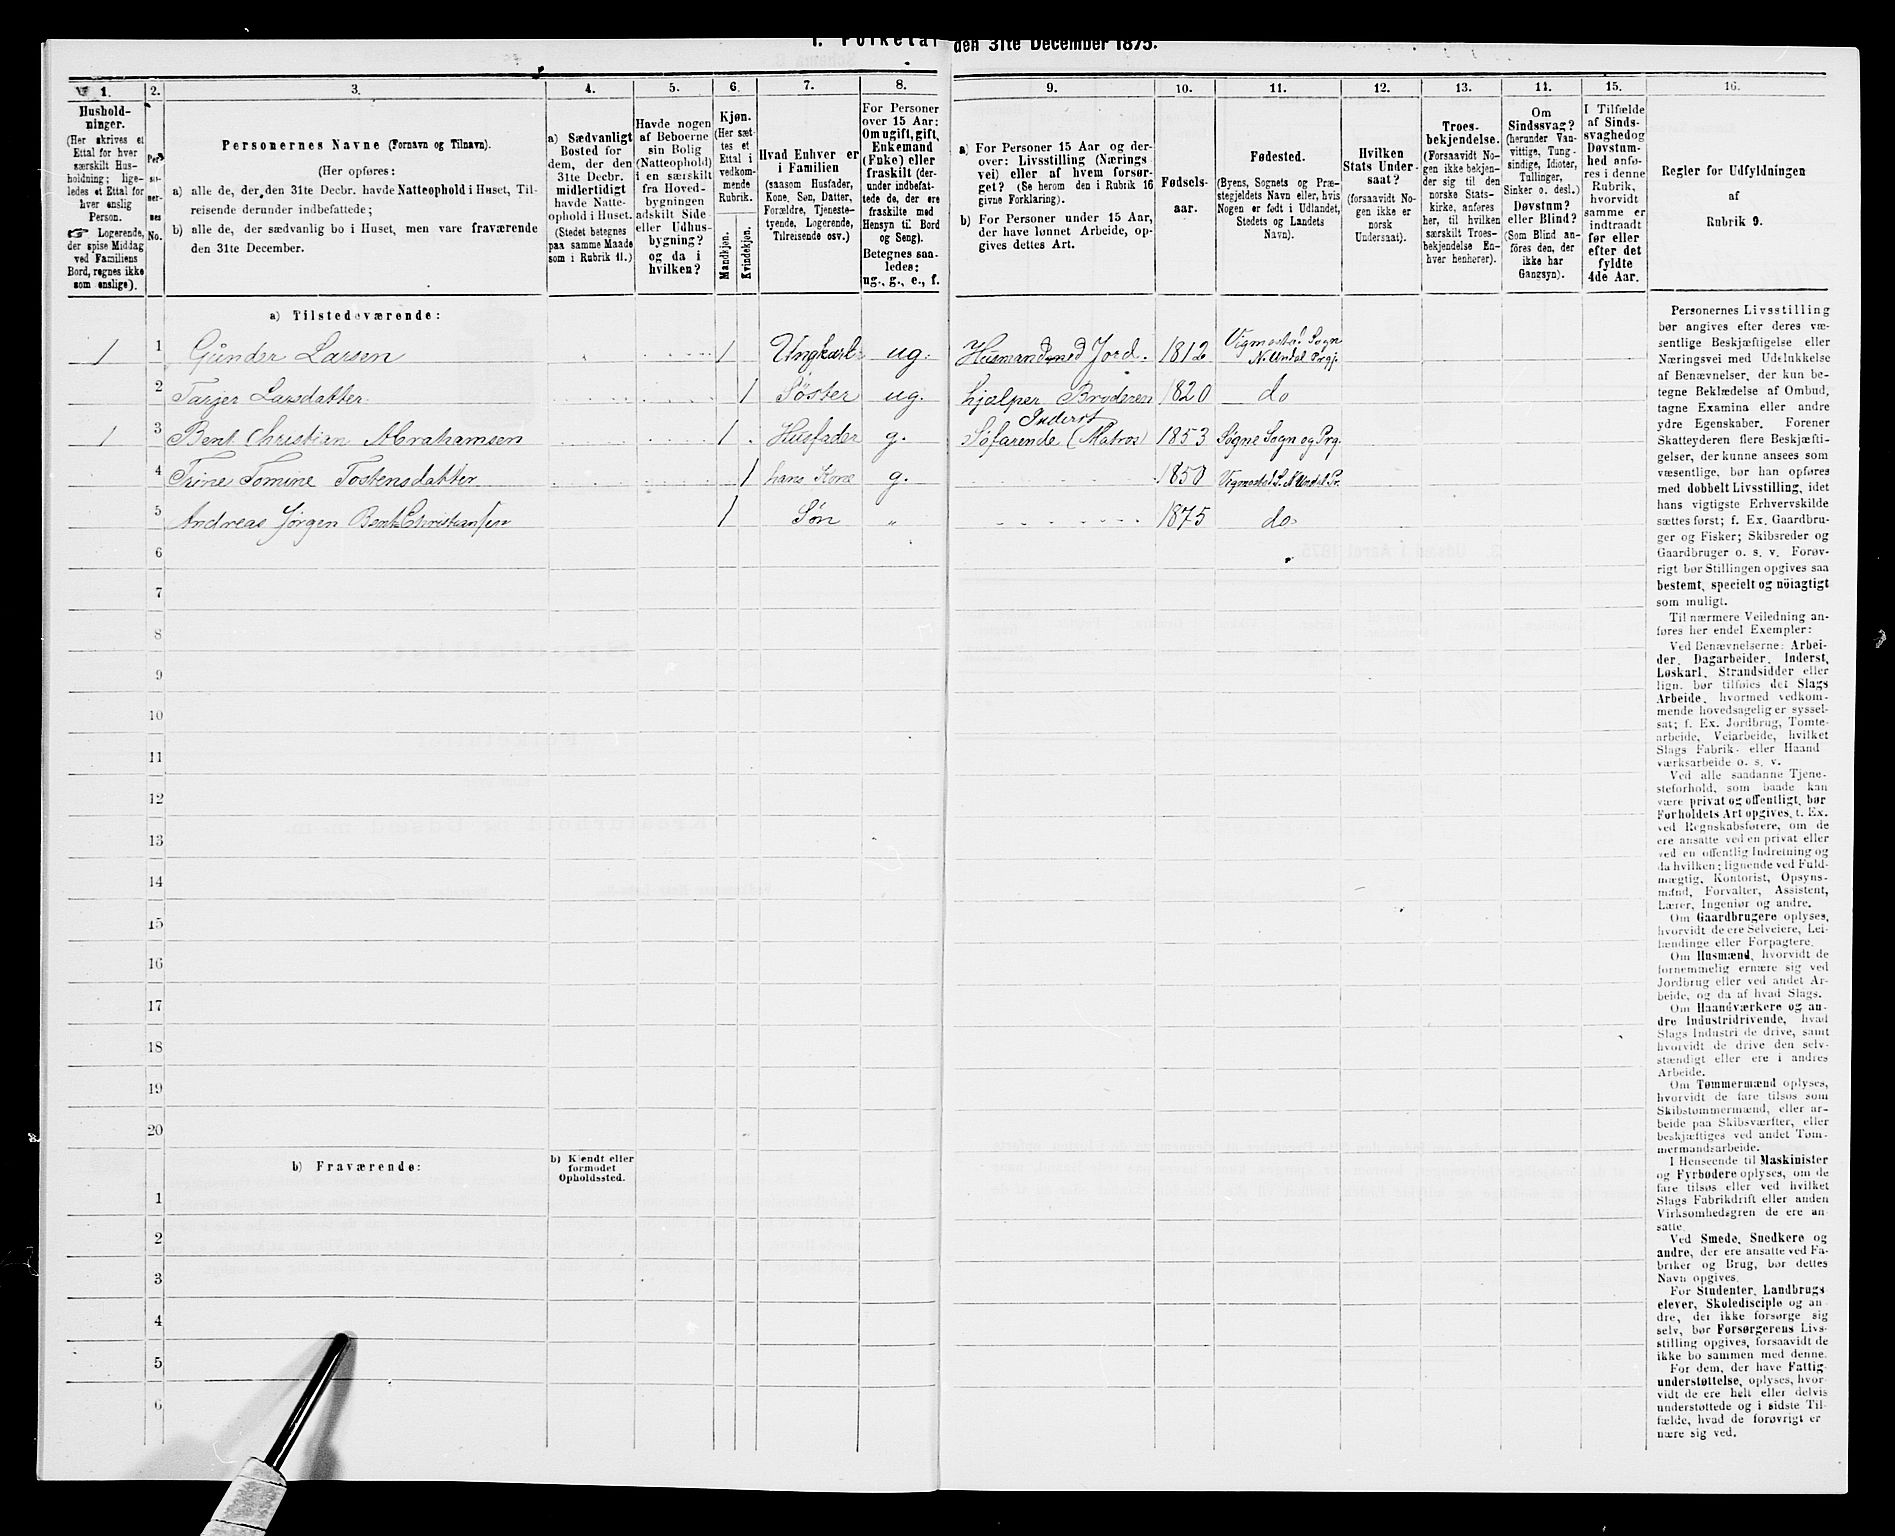 den 31te December 1875.
1.
2.
3.
4.
5.
6.
7.
8.
9.
10.
11.
12.
13.
14.
15.
16.
Hushold-
ninger.
(Her skrives et
Ettal for hver
særskilt Hus-
holdning; lige-
ledes et Ettal for
hver enslig
Person.
☞ Logerende,
der spise Middag
ved Familiens
Bord, regnes ikke
som enslige).
No.
Personernes Navne (Fornavn og Tilnavn).
(Her opføres:
a) alle de, der den 31te Decbr. havde Natteophold i Huset, Til-
reisende derunder indbefattede;
b) alle de, der sædvanlig bo i Huset, men vare fraværende
den 31te December.
a) Sædvanligt
Bosted for
dem, der den
31te Decbr.
midlertidigt
havde Natte-
ophold i Huset.
(Stedet betegnes
paa samme Maade
som i Rubrik 11.)
Havde nogen
af Beboerne
sin Bolig
(Natteophold)
i en særskilt
fra Hoved-
bygningen
adskilt Side-
eller Udhus-
bygning?
og da i
hvilken?
Kjøn.
(Her sæt-
tes et
Ettal i
vedkom-
mende
Rubrik.
Mandkjøn.
Kvindekjøn.
Hvad Enhver er
i Familien
(saasom Husfader,
Kone, Søn, Datter,
Forældre, Tjeneste-
tyende, Logerende,
Tilreisende osv.)
For Personer
over 15 Aar:
Om ugift, gift,
Enkemand
(Enke) eller
fraskilt (der-
under indbefat-
tede de, der ere
fraskilte med
Hensyn til Bord
og Seng).
Betegnes saa-
ledes:
ug., g., e., f.
a) For Personer 15 Aar og der-
over: Livsstilling (Nærings-
vei) eller af hvem forsør-
get? (Se herom den i Rubrik 16
givne Forklaring).
b) For Personer under 15 Aar,
der have lønnet Arbeide, op-
gives dettes Art.
Fødsels-
aar.
Fødested.
(Byens, Sognets og Præ-
stegjeldets Navn eller, hvis
Nogen er født i Udlandet,
Stedets og Landets
Navn).
Hvilken
Stats Under-
saat?
(forsaavidt No-
gen ikke er
norsk
Undersaat).
Troes-
bekjendelse.
(Forsaavidt No-
gen ikke bekjen-
der sig til den
norske Stats-
kirke, anføres
her, til hvilken
særskilt Troes-
bekjendelse En-
hver henhører).
Om
Sindssvag?
(herunder Van-
vittige, Tung-
sindige, Idioter,
Tullinger,
Sinker o. desl.)
Døvstum?
eller Blind?
(Som Blind an-
føres den, der
ikke har
Gangsyn).
I Tilfælde
af Sinds-
svaghed og
Døvstum-
hed anfø-
res i denne
Rubrik,
hvorvidt
samme er
indtraadt
før eller
efter det
fyldte
4de Aar.
Regler for Udfyldningen
af
Rubrik 9.
a) Tilstedeværende:
1 1 Gunder Larsen 1 Ungkarl ug. Husmand med Jord. 1812 Vigmostad Sogn N. Undal Prgj.
2 Tarjer Larsdatter 1 Søster ug. hjælper Broderen 1820 do
1 3 Bent Christian Abrahamsen 1 Husfader g. Inderst Søfarende (Matros) 1853 Søgne Sogn og Prg.
4 Trine Tomine Tostensdatter 1 hans Kone g. 1850 Vigmostad S. N. Undal Pr.
5 Andreas Jørgen Bent Christiansen 1 Søn „ 1875 do
6
7
8
9
10
11
12
13
14
15
16
17
18
19
20
b) Fraværende:
b) Kjendt eller
formodet
Opholdssted.
1
2
3
4
5
6
Personernes Livsstilling
bør angives efter deres væ-
sentlige Beskjæftigelse eller
Næringsvei med Udelukkelse
af Benævnelser, der kun be-
tegne Beklædelse af Ombud,
tagne Examina eller andre
ydre Egenskaber. Forener
Skatteyderen flere Beskjæfti-
gelser, der kunne ansees som
væsentlige, bør han opføres
med dobbelt Livsstilling, idet
hans vigtigste Erhvervskilde
sættes først; f. Ex. Gaardbru-
ger og Fisker; Skibsreder og
Gaardbruger o. s. v. Forøv-
rigt bør Stillingen opgives saa
bestemt, specielt og nöiagtigt
som muligt.
Til nærmere Veiledning an-
føres her endel Exempler:
Ved Benævnelserne: Arbei-
der, Dagarbeider, Inderst,
Løskarl, Strandsidder eller
lign. bør tilføies det Slags
Arbeide, hvormed vedkom-
mende hovedsagelig er syssel-
sat; f. Ex. Jordbrug, Tomte-
arbeide, Veiarbeide, hvilket
Slags Fabrik- eller Haand-
værksarbeide o. s. v.
Ved alle saadanne Tjene-
steforhold, som baade kan
være privat og offentligt, bør
Forholdets Art opgives, f. Ex.
ved Regnskabsførere, om de
ere ansatte ved en privat eller
ved en offentlig Indretning og
da hvilken; lignende ved Fuld-
mægtig, Kontorist, Opsyns-
mand, Forvalter, Assistent,
Lærer, Ingeniør og andre.
Om Gaardbrugere oplyses,
hvorvidt de ere Selveiere, Lei-
lændinge eller Forpagtere.
Om Husmænd, hvorvidt de
fornemmelig ernære sig ved
Jordbrug eller ved andet Ar-
beide, og da af hvad Slags.
Om Haandværkere og an-
dre Industridrivende, hvad
Slags Industri de drive, samt
hvorvidt de drive den selv-
stændigt eller ere i andres
Arbeide.
Om Tømmermænd oplyses,
hvorvidt de fare tilsøs som
Skibstømmermænd, eller ar-
beide paa Skibsværfter, eller
beskjæftiges ved andet Tøm-
mermandsarbeide.
I Henseende til Maskinister
og Fyrbødere oplyses, om de
fare tilsøs eller ved hvilket
Slags Fabrikdrift eller anden
Virksomhedsgren de ere an-
satte.
Ved Smede, Snedkere og
andre, der ere ansatte ved Fa-
briker og Brug, bør dettes
Navn opgives.
For Studenter, Landbrugs-
elever, Skoledisciple og an-
dre, der ikke forsørge sig
selv, bør Forsørgerens Livs-
stilling opgives, forsaavidt de
ikke bo sammen med denne.
For dem, der have Fattig-
understøttelse, oplyses, hvor-
vidt de ere helt eller delvis
understøttede og i sidste Til-
fælde, hvad de forøvrigt er-
nære sig ved.